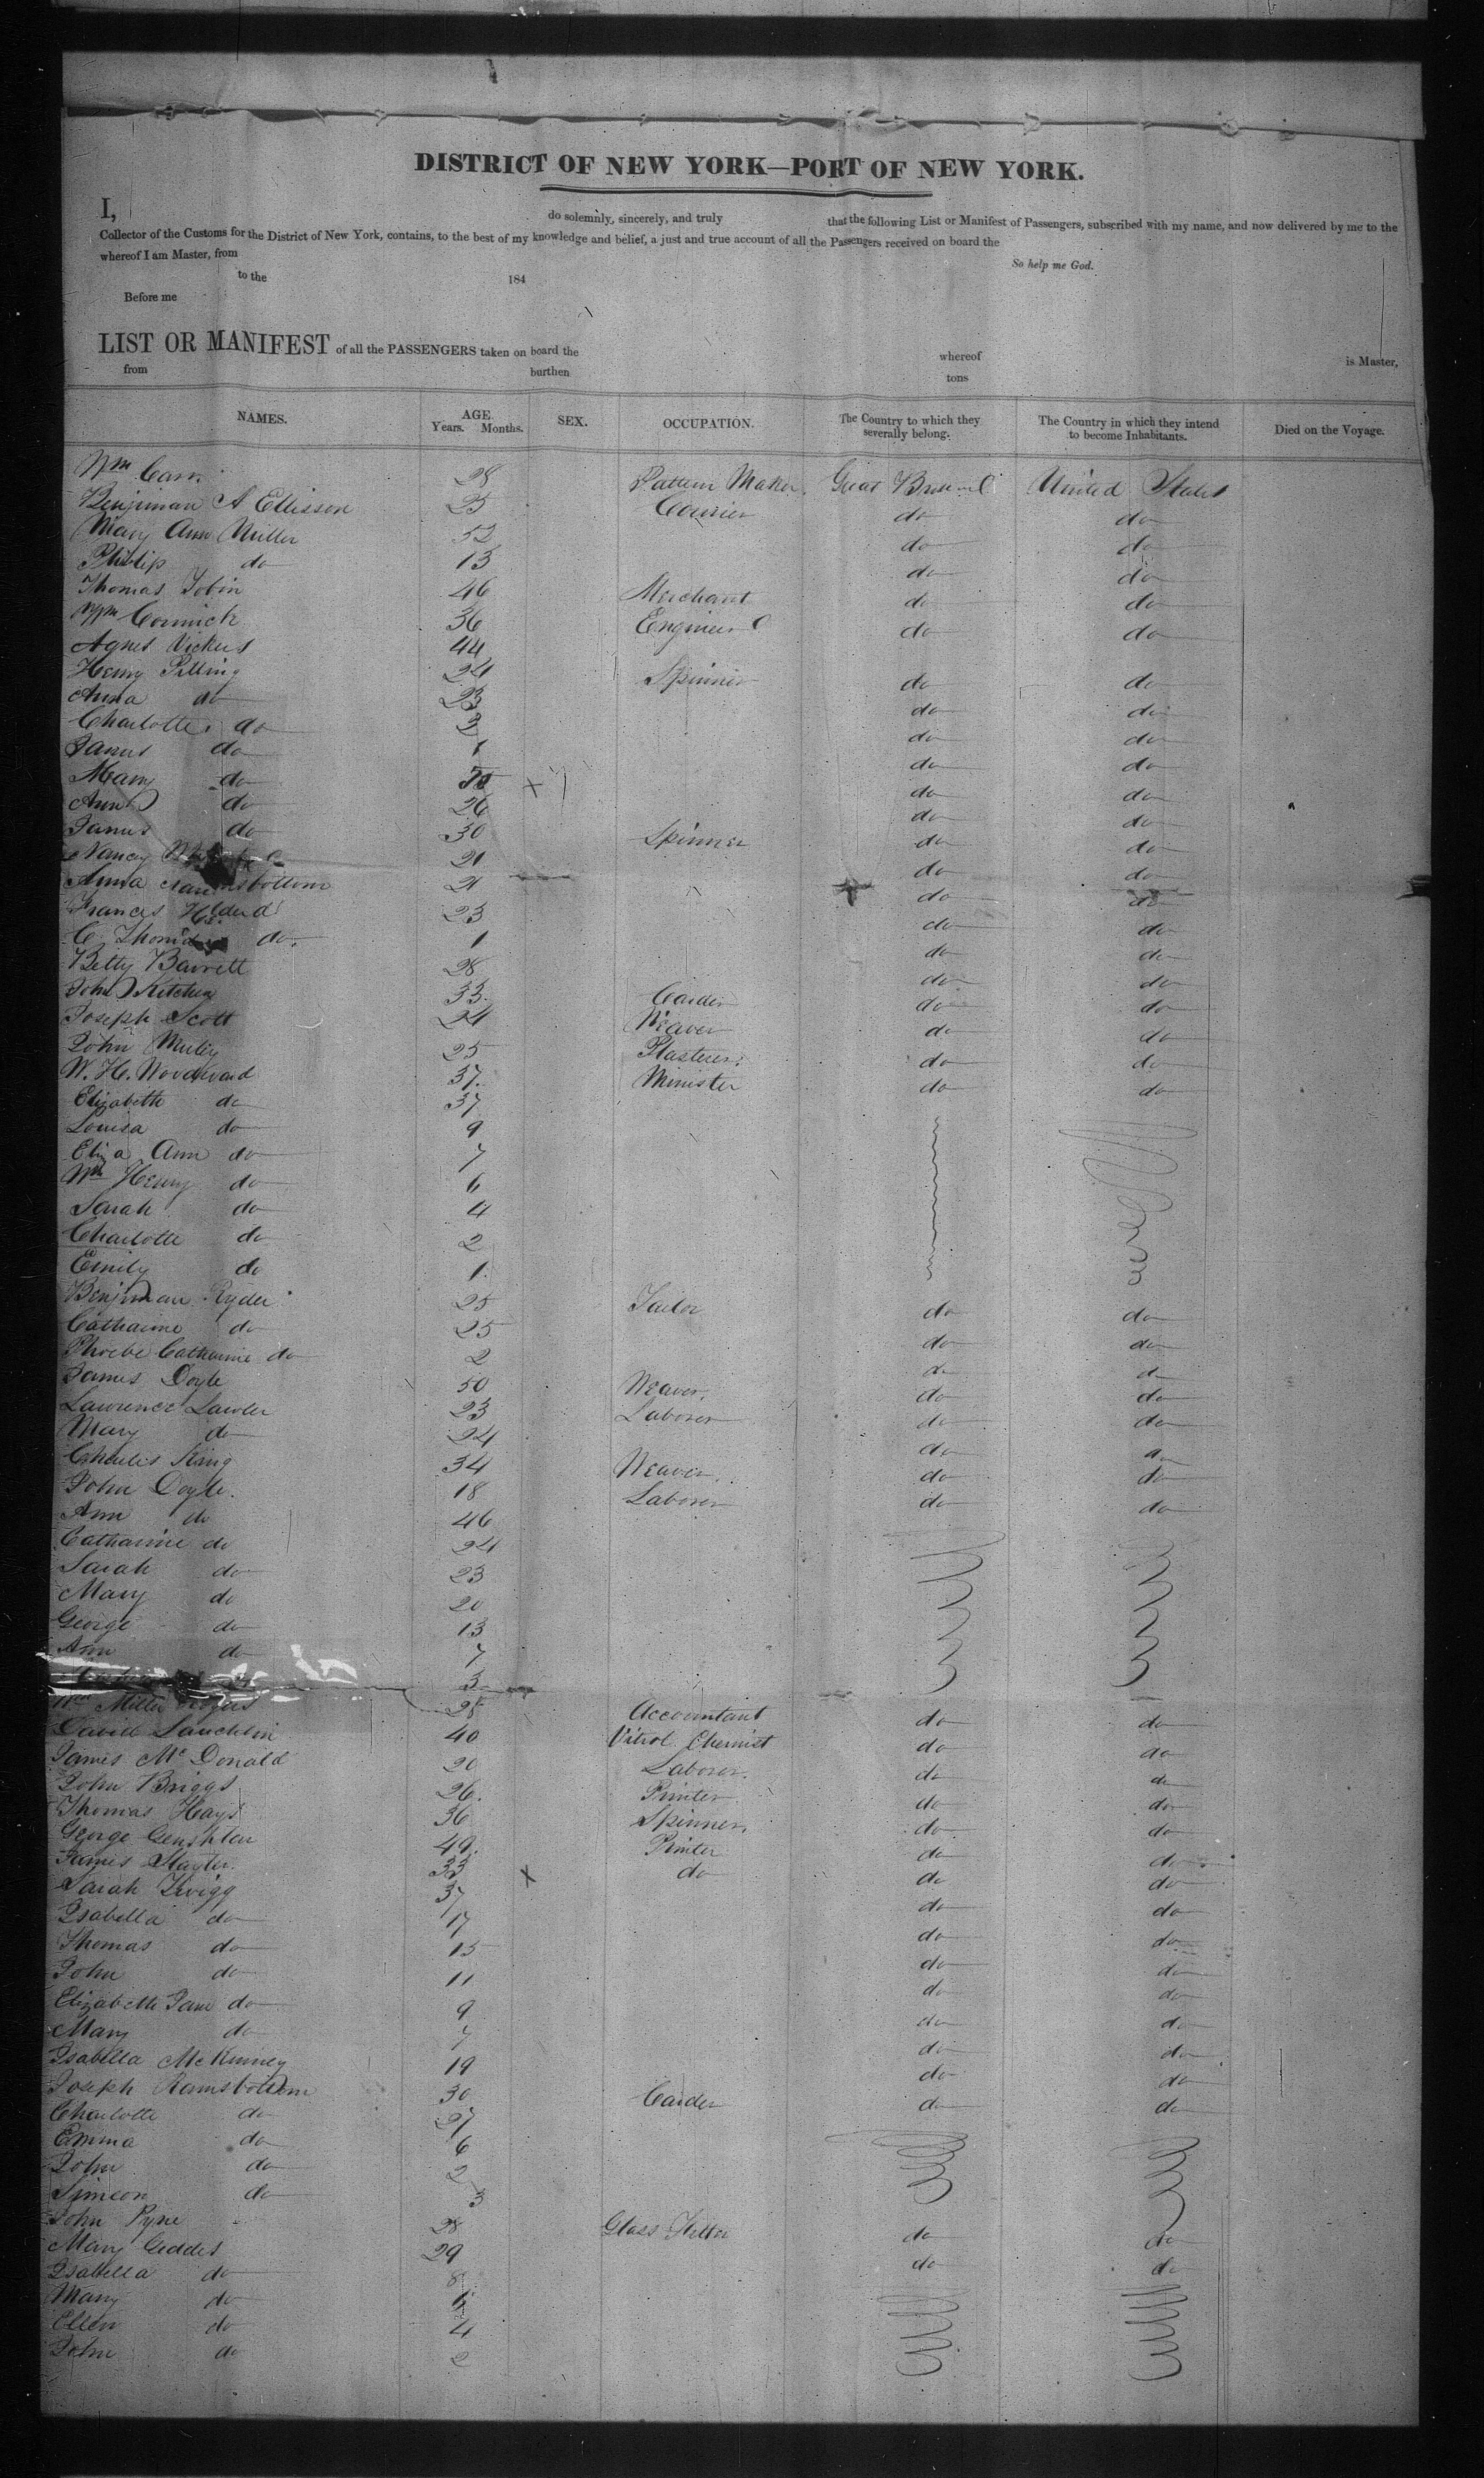 DISTRICT OF NEW YORK—PORT OF NEW YORK.
I, do solemnly, sincerely, and truly that the following List or Manifest of Passengers, subscribed with my name, and now delivered by me to the
Collector of the Customs for the District of New York, contains, to the best of my knowledge and belief, a just and true account of all the Passengers received on board the
whereof I am Master, from So help me God.
to the 184
Before me
LIST OR MANIFEST of all the PASSENGERS taken on board the whereof is Master,
from burthen tons
NAMES. AGE. Years. Months. SEX. OCCUPATION. The Country to which they severally belong. The Country in which they intend to become Inhabitants. Died on the Voyage.
Wm Carr 28 Pattern Maker Great Britain United States
Benjiman A Ellisson 25 Courier do do
Mary Ann Miller 52 do do
Phillip do 13 do do
Thomas Tobin 46 Merchant do do
Wm Cormick 36 Engineer do do
Agnes Vickers 44
Henry Pilling 24 Spinner do do
Anna do 23 do do
Charlotte do 2 do do
James do 1 do do
Mary do 50 x do do
Ann do 26 do do
James do 30 Spinner do do
Nancy 21 do do
Anna Ramsbottom 21 do do
Frances 23 do do
C. do. 1 do do
Betty Barrett 28 do do
John Kitchen 33 Carder do do
Joseph Scott 24 Weaver do do
John 25 Plasterer do do
W. H. Woodward 37 Minister do do
Elizabeth do 37
Louisa do 9
Eliza Ann do 7
Wm Henry do 6
Sarah do 4
Charlotte do 2
Emily do 1
Benjiman Ryder 25 Tailor do do
Catharine do 25 do do
Phoebe Catharine do 2 do do
James Doyle 50 Weaver do do
Lawrence Lawler 23 Laborer do do
Mary do 24 do do
Charles King 34 Weaver do do
John Doyle 18 Laborer do do
Ann do 46
Catharine do 24
Sarah do 23
Mary do 20
George do 13
Ann do 7
3
Wm Miller 28 Accountant do do
David Lauchlin 40 Vitrol Chemist do do
James McDonald 20 Laborer do do
John Briggs 26 Printer do do
Thomas Hays 36 Spinner do do
George 49 Printer do do
James Slayter 33 x do do do
Sarah Twigg 37 do do
Isabella do 17 do do
Thomas do 15 do do
John do 11 do do
Elizabeth Jane do 9 do do
Mary do 7 do do
Isabella McKinney 19 do do
Joseph Ramsbottom 30 Carder do do
Charlotte do 27
Emma do 6
John do 2
Simeon do 3
John Pyne 28 Glass do do
Mary Geddes 29 do do
Isabella do 8
Mary do 6
Ellen do 4
John do 2